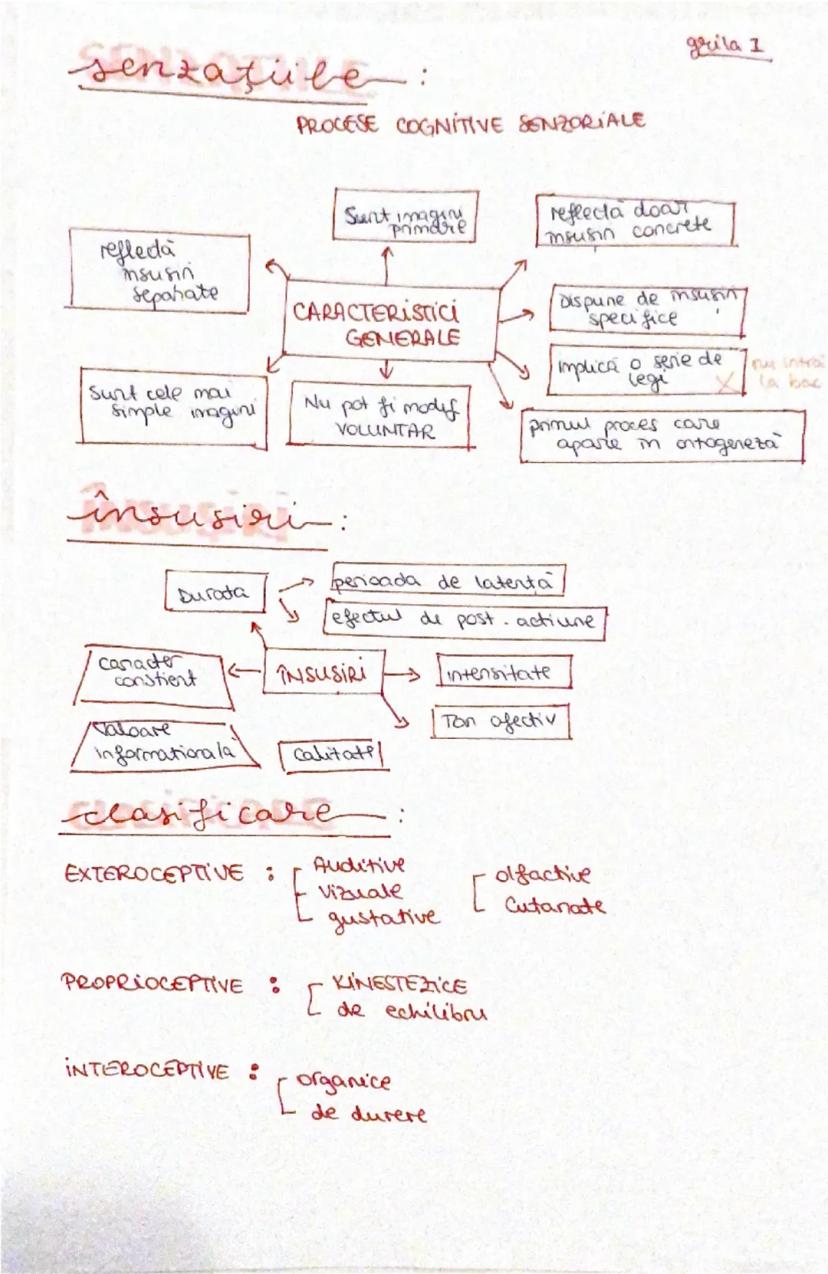 grila 1
senzațiile :
PROCESE COGNITIVE SENZORIALE
Sunt imagini
primare
reflectă doar
însușiri concrete
reflectă
însușiri
separate
CARACTERISTICI
GENERALE
Dispune de însușiri
specifice
implică o serie de
legi
X
nu intră
la bac
Sunt cele mai
simple imagini
Nu pot fi modif
VOLUNTAR
primul proces care
apare în ontogeneză
însusiri :
Durata
perioada de latență
efectul de post-actiune
caracter
constient
ÎNSUSIRI
intensitate
Ton afectiv
Valoare
informationala
Calitate
clasificare :
EXTEROCEPTIVE :
Auditive
Vizuale
gustative
olfactive
Cutanate
PROPRIOCEPTIVE :
KINESTEZICE
de echilibru
INTEROCEPTIVE :
organice
de durere